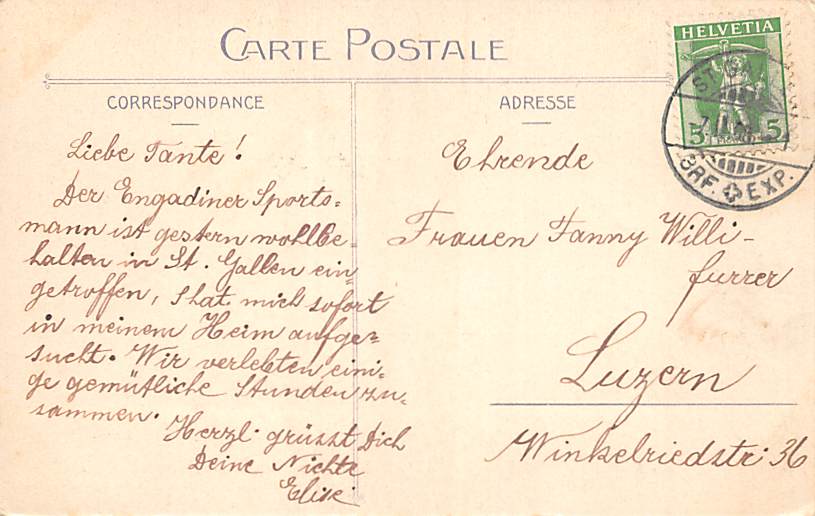 CARTE POSTALE
CORRESPONDANCE
Liebe Tante!
Der Engadiner Sports=
mann ist gestern wohlbe=
halten in St. Gallen ein
getroffen, & hat mich sofort
in meinem Heim aufge=
sucht. Wir verlebten eini=
ge gemütliche Stunden zu=
sammen.
Herzl. grüsst Dich
Deine Nichte
Elise
ADRESSE
Ehrende
Frauen Fanny Willi-
furrer
Luzern
Winkelriedstr. 36
HELVETIA
5 5
BRF. EXP.